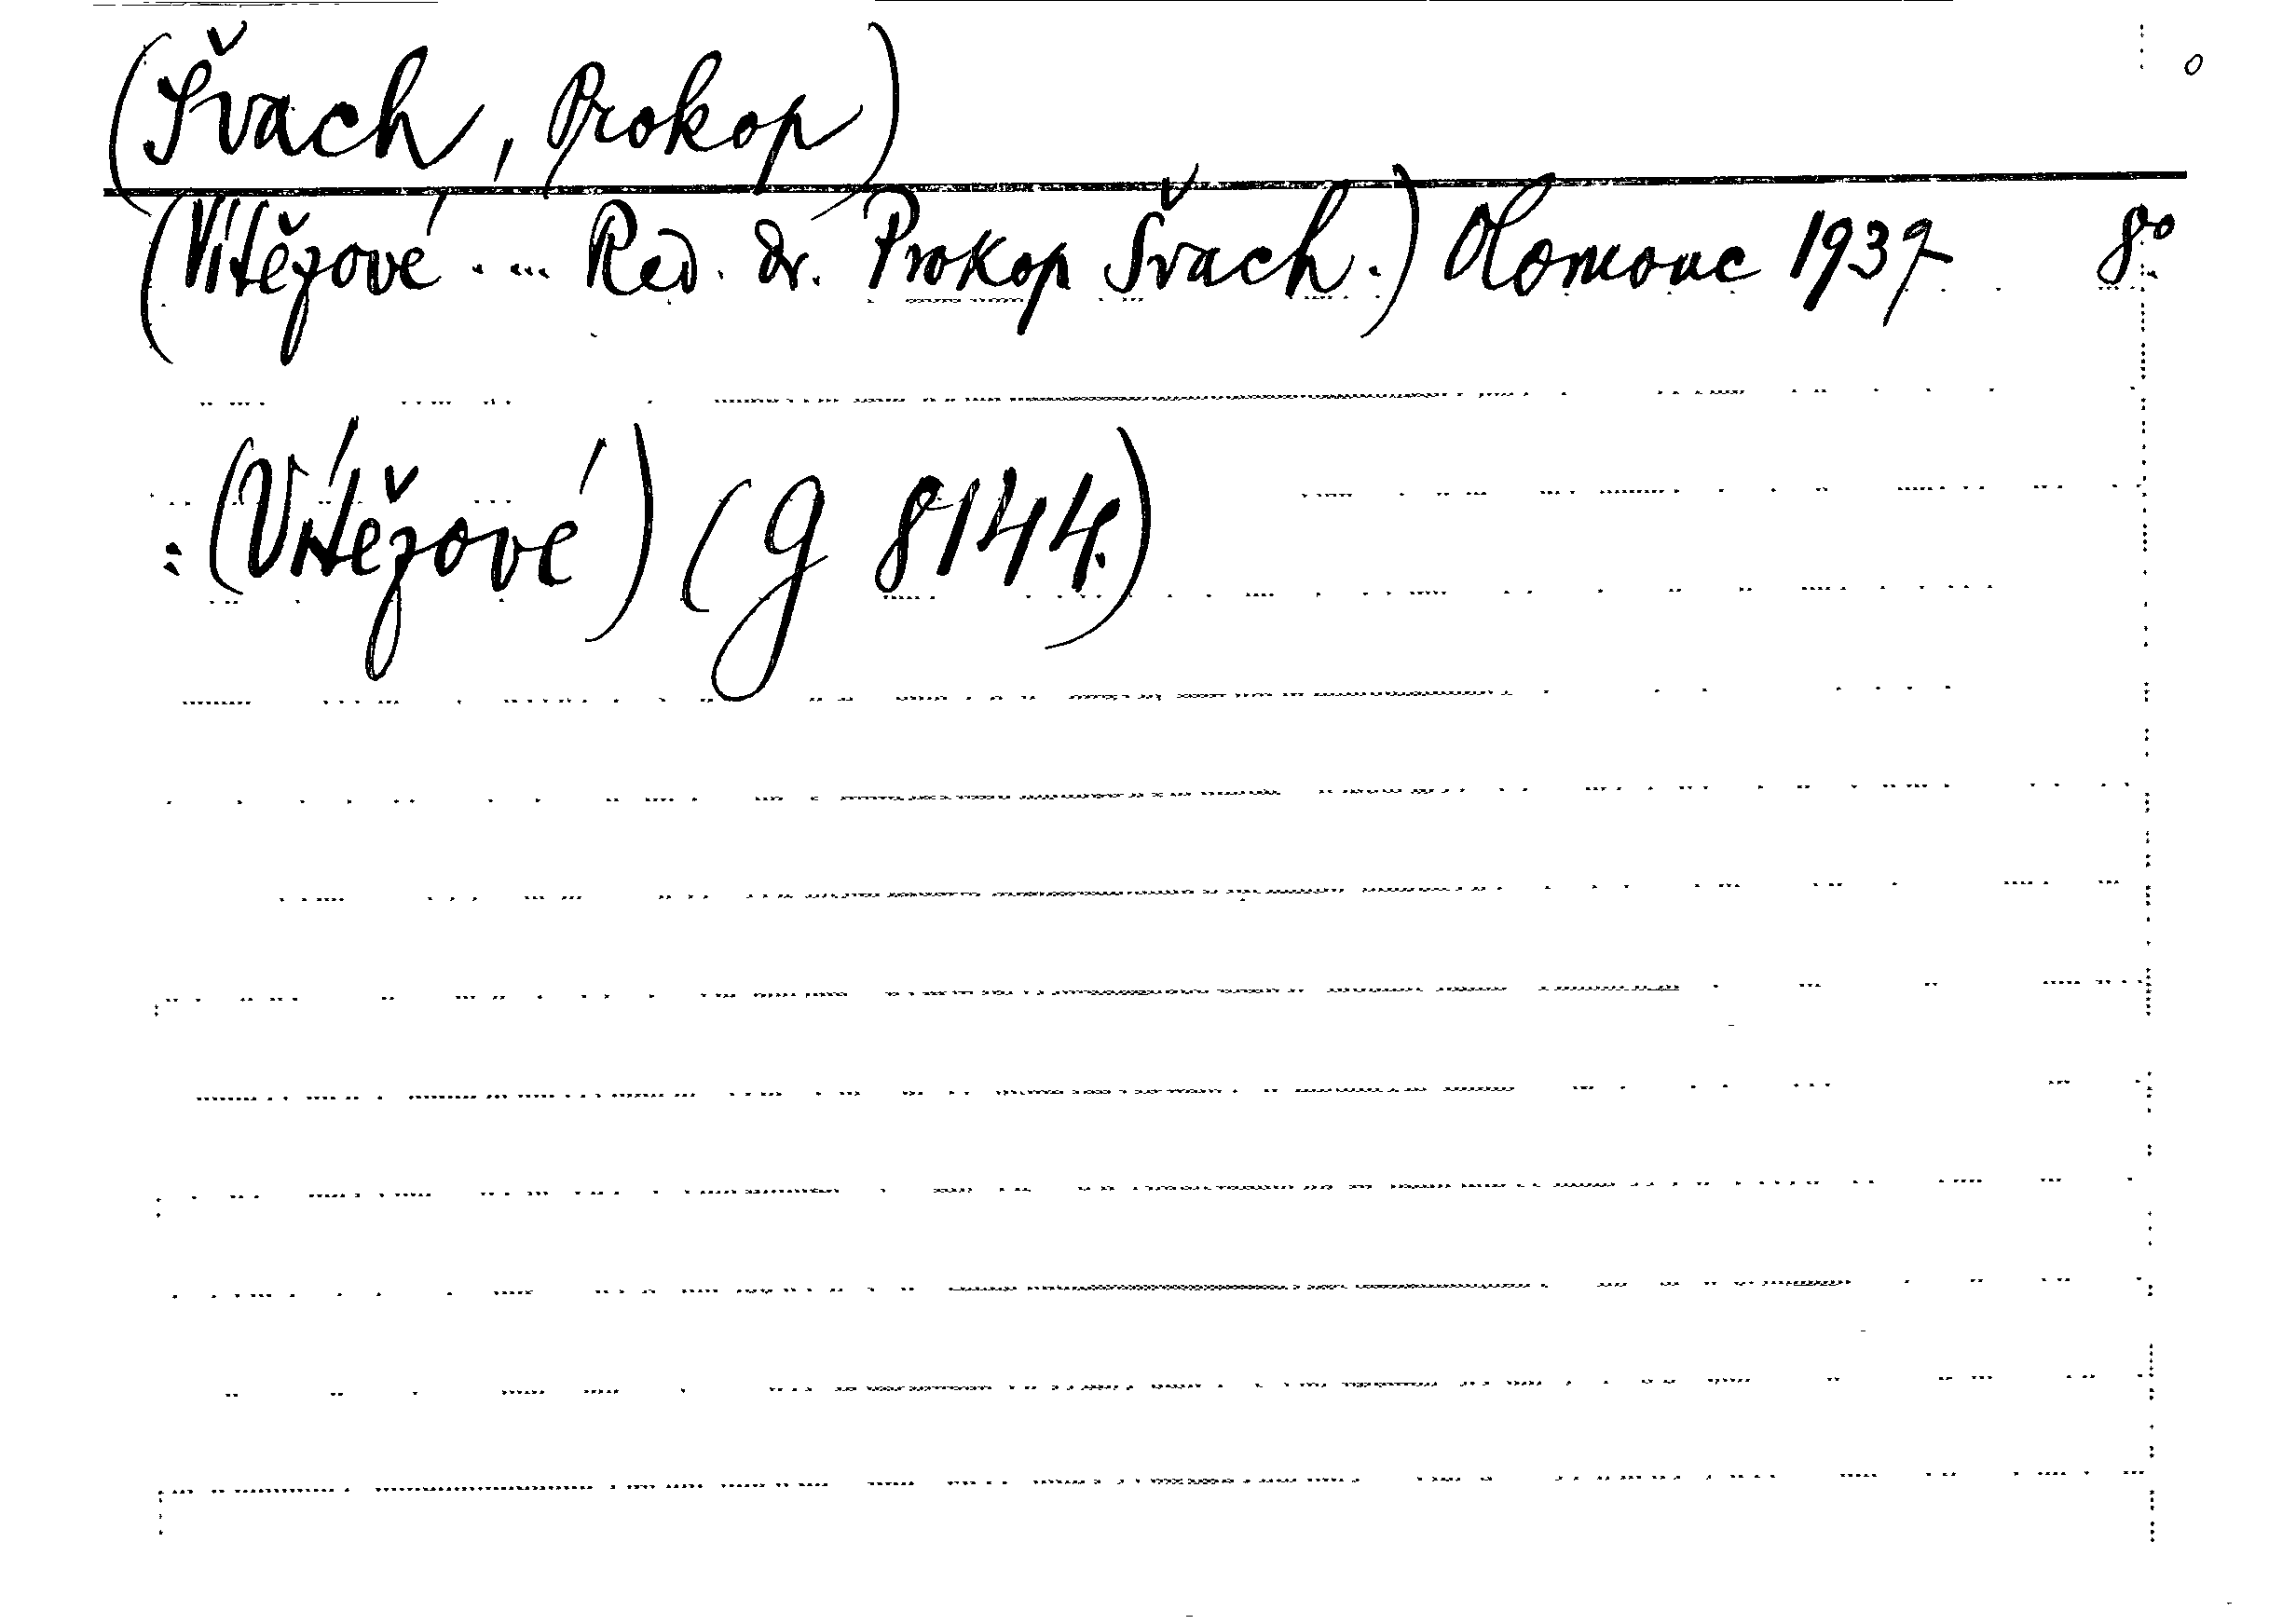 (Švach, Prokop)
(Vítězové ..... Red. dr. Prokop Švach.) Olomouc 1937 8°
: (Vítězové) (g 8144.)